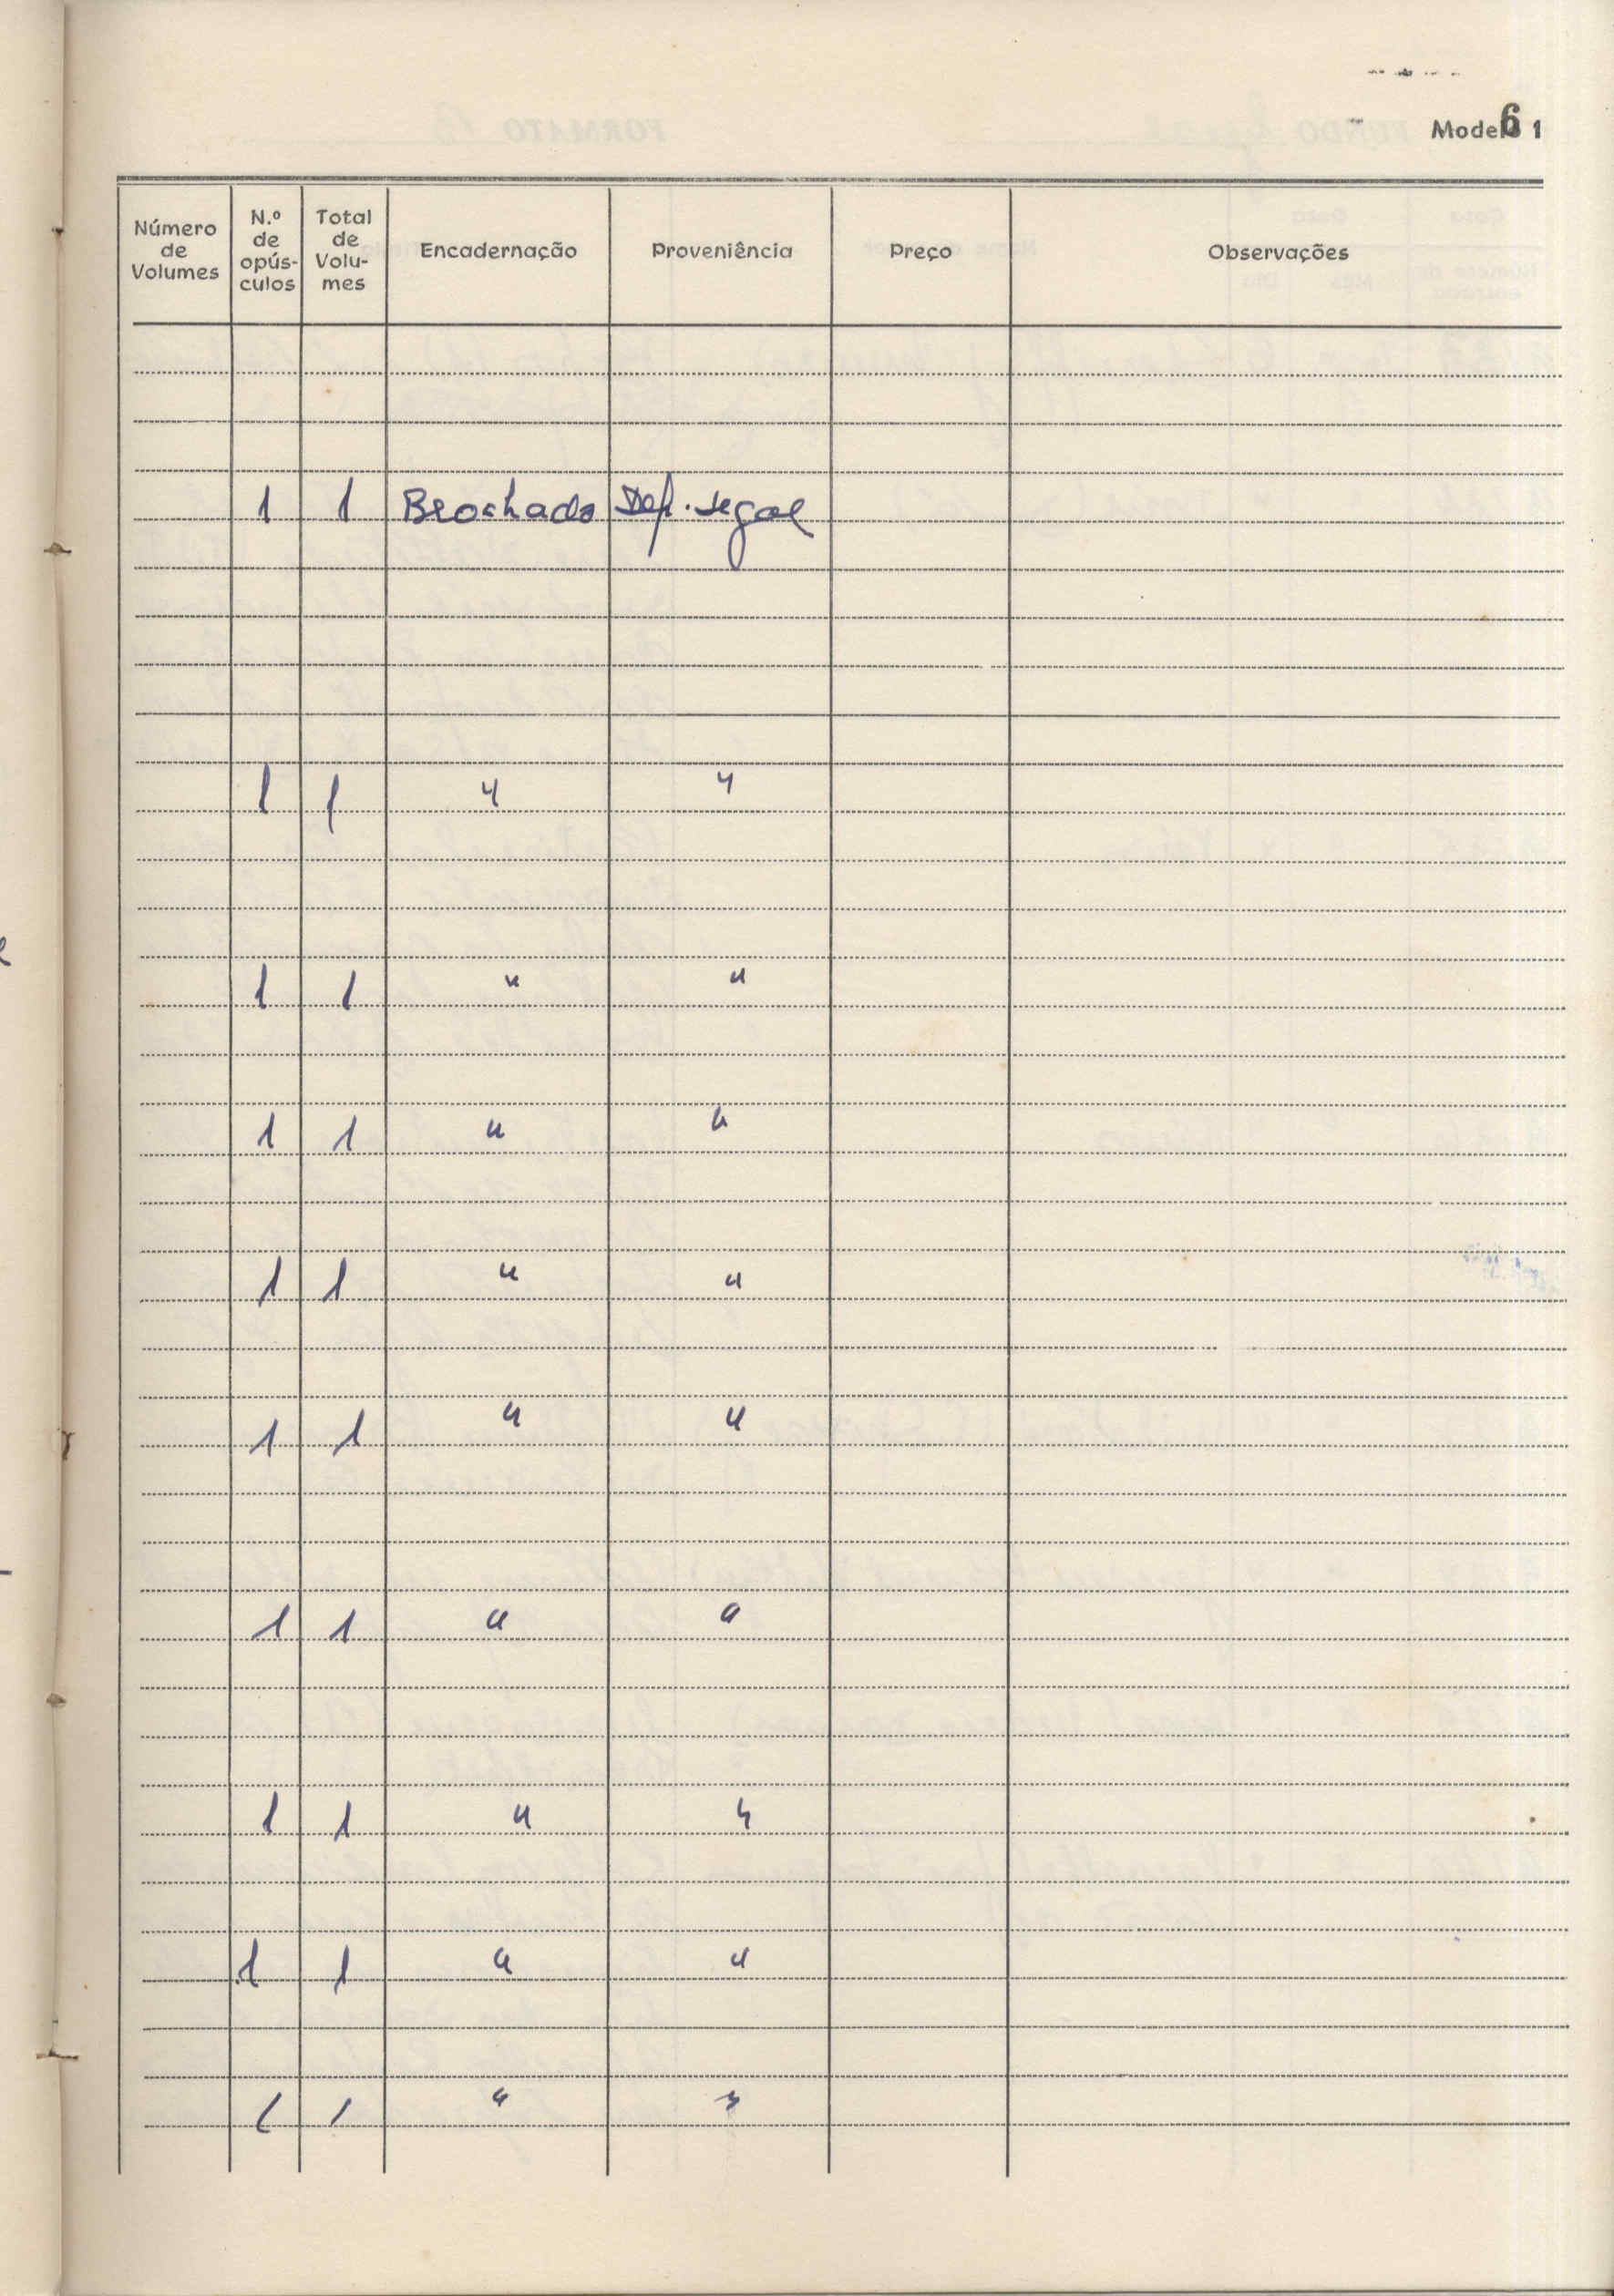 Modelo 1
6
Número de Volumes | N.º de opús- culos | Total de Volu- mes | Encadernação | Proveniência | Preço | Observações
1 1 Brochado Dep. Legal
1 1 " "
1 1 " "
1 1 " "
1 1 " "
1 1 " "
1 1 " "
1 1 " "
1 1 " "
1 1 " "